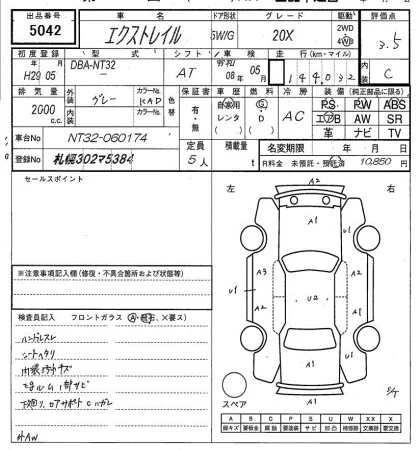 出品番号 車名 ドア形状 グレード 駆動 評価点
5042 エクストレイル 5W/G 20X 2WD 4WD 3.5
初度登録 型式 シフト 車検 走行(km・マイル) 内装
H29 05 DBA-NT32 AT 08年 05月 144,032 C
排気量 外装 グレー カラーNo. KAD 色替 保証書 車歴 燃料 冷房
2000 c.c. 内装 カラーNo. 有・無 自家用 レンタ ( ) G・D ( ) AC
PS PW ABS
エアB AW SR
革 ナビ TV
車台No NT32-060174 定員 積載量 名変期限 年 月 日
登録No 札幌302マ5384 5人 t R料金 未預託・預託済 10,850円
セールスポイント
左 右
A2
A1
A3 A1 A2
U1 U2 U1
A2 A2
A1
A1
※注意事項記入欄(修復・不具合箇所および状態等)
検査員記入 フロントガラス(A・飛石、×要ス)
ハンドルスレ
シートヘタリ
内張りキズ
下廻り、ロアサポートCハガレ
社外AW
スペア
A B C P S U W X XX
線キズ 要板金 腐蝕 要塗装 サビ 凹凸 補修跡 要交換 交換済